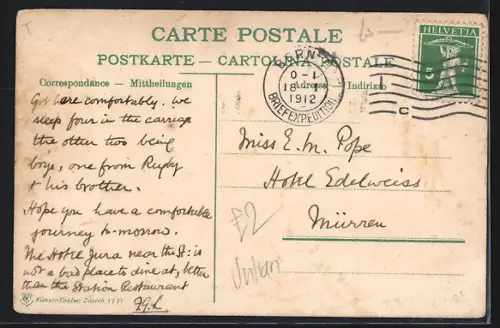 CARTE POSTALE
POSTKARTE — CARTOLINA POSTALE
Correspondance — Mittheilungen
Adresse
Indirizzo
Got here comfortably. We
sleep four in the carriage
the other two being
boys, one from Rugby
& his brother.
Hope you have a comfortable
journey to-morrow.
The Hotel Jura near the St: is
not a bad place to dine at, better
than the Station Restaurant
Miss E. M. Pope
Hotel Edelweiss
Mürren
£2
HELVETIA
5
BERN
0-1
18 I
1912
BRIEFEXPEDITION
C
Künzli-Tobler, Zürich